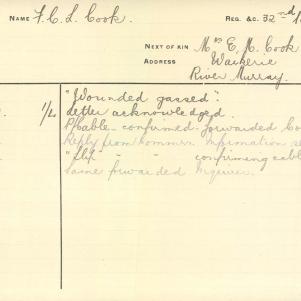 NAME F. C. L. Cook.
REG. &C. 32nd
NEXT OF KIN Mrs E. M. Cook
ADDRESS Waikerie
River Murray.
"Wounded gassed".
1/L Letter acknowledged.
P/Cable confirmed. forwarded Co
Reply from Commun Information
" - - confirming cabl
Same forwarded Inquirer.